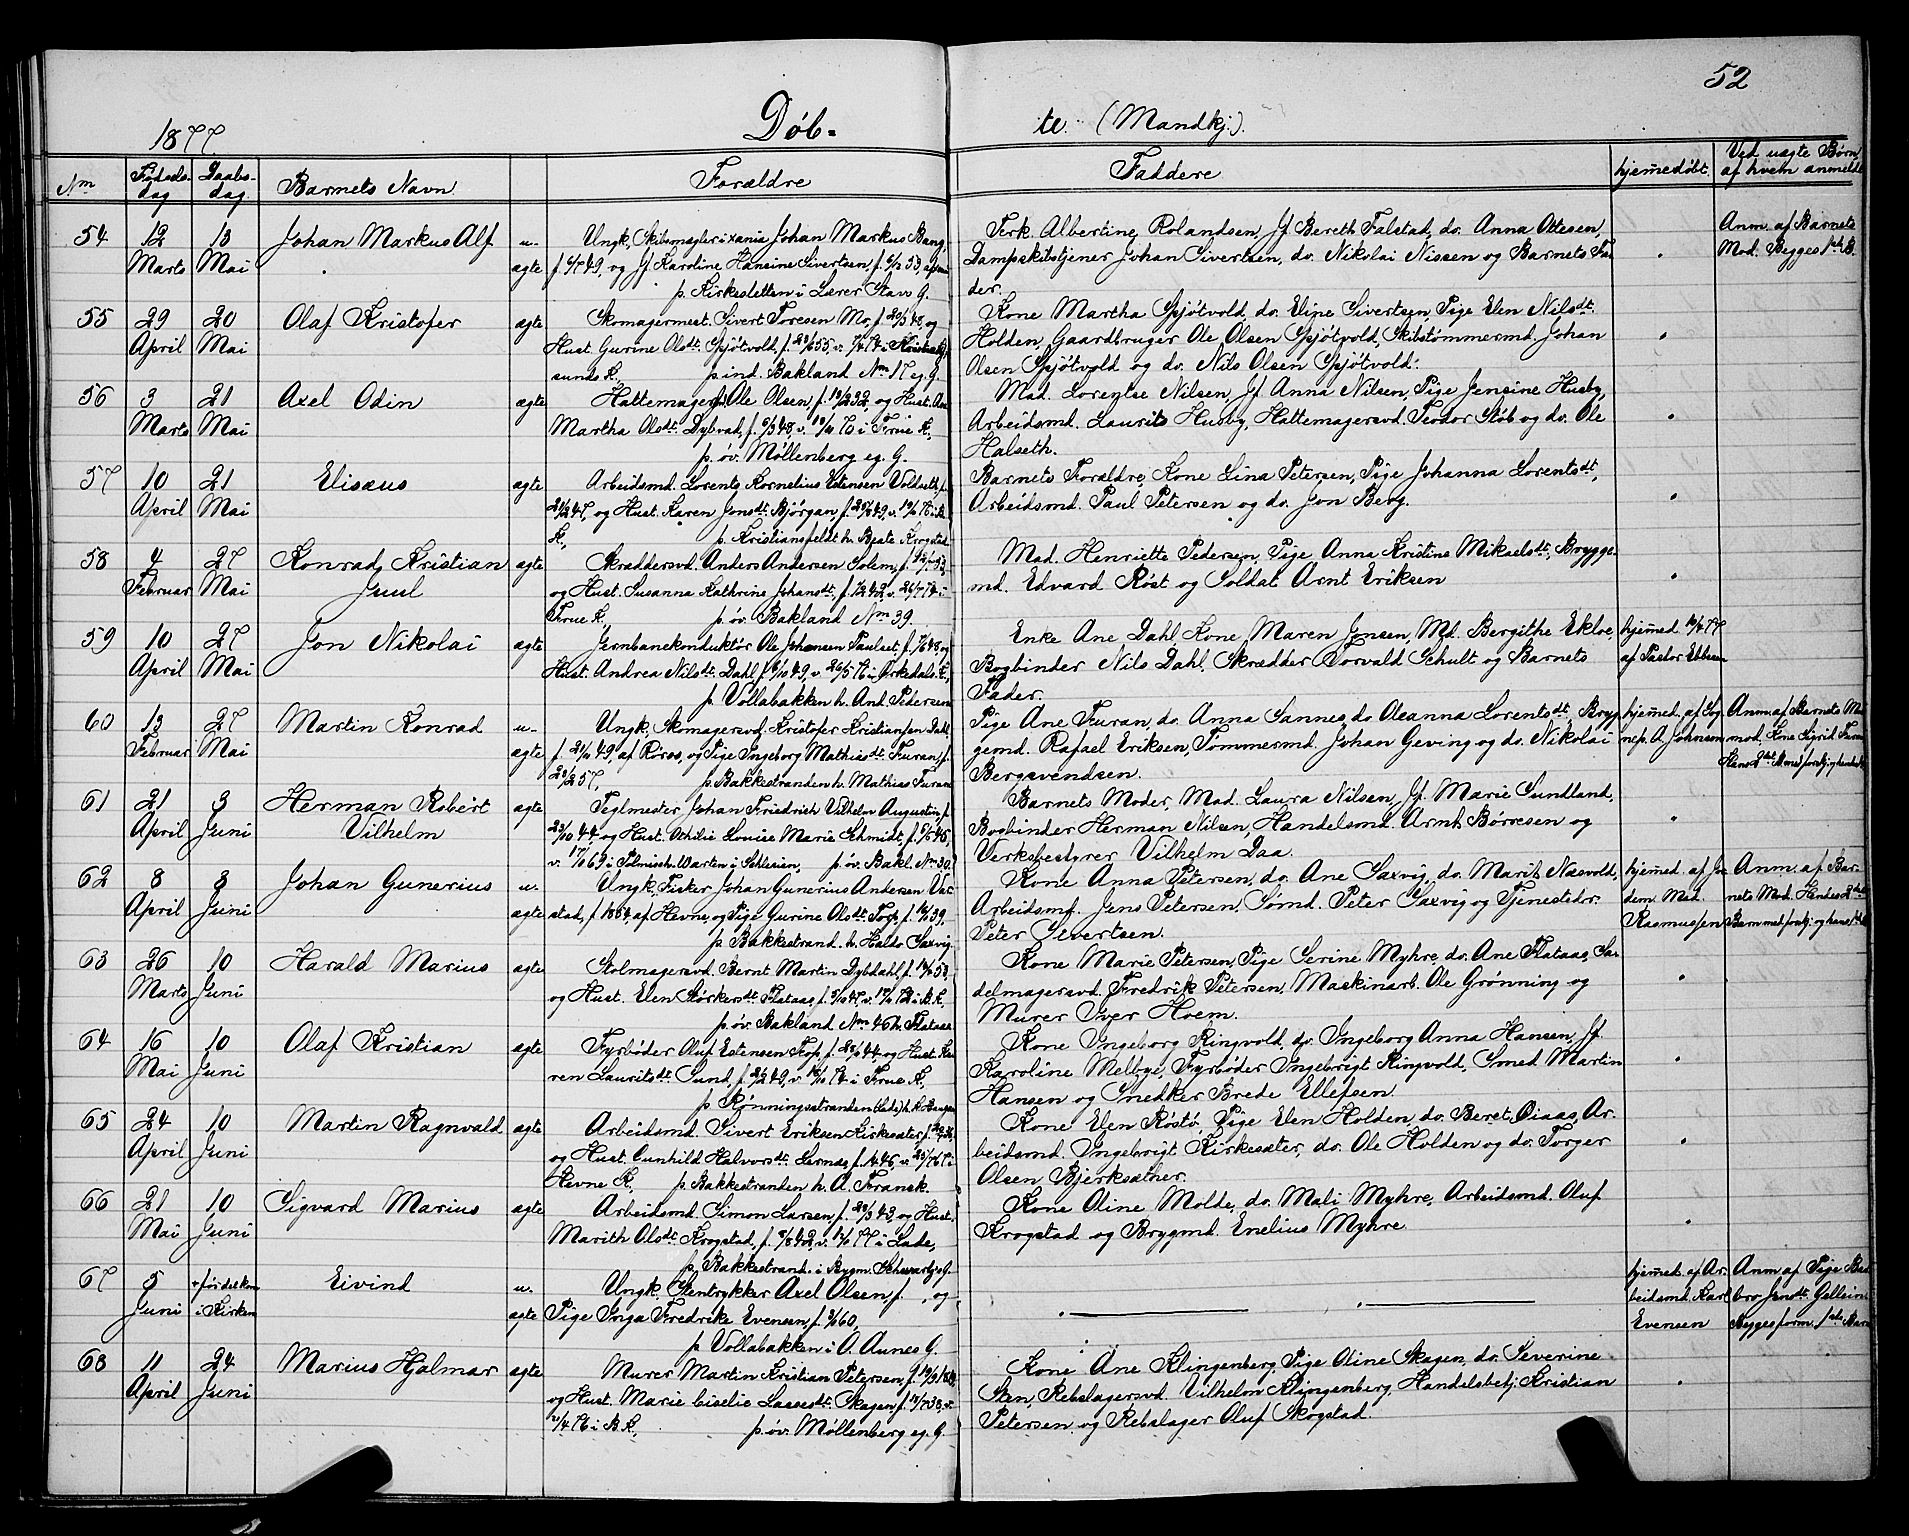 52
1877.
Døb-
te. (Mandkj.).
Nm
Fødsels-
dag
Daabs-
dag.
Barnets Navn
Forældre
Faddere
hjemmedøbt.
Ved uægte Børn
af hvem anmeldt
54 12 Marts 13 Mai
Johan Markus Alf
u-
ægte
Ungk. Skibsmægler i Xania Johan Markus Bang
f. 6/7 49, og Jf. Karoline Hansine Sivertsen, f. 6/12 53,
p. Kirkesletten i Lærer Stavs G.
Frk. Albertine Rolandsen, Jf. Bereth Falstad, do. Anna Ottesen,
Dampskibstjener Johan Sivertsen, do. Nikolai Nissen og Barnets Fa-
der.
Anm. af Barnets
Mod. Begges 1ste B.
55 29 April 20 Mai
Olaf Kristofer
ægte
Skomagermest. Sivert Toresen Mo, f. 20/3 48, og
Hust. Gurine Olsdt. Spjøtvold, f. 23/6 55, v. i Kristian-
sunds K., p. ind. Bakland Nm 17 eg. G.
Kone Martha Spjøtvold, do. Eline Sivertsen, Pige Elen Nilsdt.
Holden, Gaardbruger Ole Olsen Spjøtvold, Skibstømmermd. Johan
Olsen Spjøtvold og do. Nils Olsen Spjøtvold.
56 3 Marts 21 Mai
Axel Odin
ægte
Hattemagersvd. Ole Olsen, f. 10/2 32, og Hust. Ane
Martha Olsdt. Dybvad, f. 6/3 48, v. i Frue K.,
p. øv. Møllenberg eg. G.
Mad. Lorentse Nilsen, Jf. Anna Nilsen, Pige Jensine Husby,
Arbeidsmd. Laurits Husby, Hattemagersvd. Teodor Støb og do. Ole
Halseth.
57 10 April 21 Mai
Elisæus
ægte
Arbeidsmd. Lorents Kornelius Estensen Voldseth, f.
21/2 47, og Hust. Karen Jonsdt. Bjørgan, f. 49, v. i B.
K., p. Kristiansfeldt h. Beate Krogstad
Barnets Forældre, Kone Lina Petersen, Pige Johanna Lorentsdt.,
Arbeidsmd. Paul Petersen og do. Jon Berg.
58 4 Februar 27 Mai
Konrad Kristian
Juul
ægte
Skræddersvd. Anders Andersen Solem, f.
og Hust. Susanna Kathrine Johansdt., f. 42, v. i
Frue K., p. øv. Bakland Nm 39.
Mad. Henriette Pedersen, Pige Anna Kristine Mikaelsdt., Brygge-
md. Edvard Røst og Soldat Arnt Eriksen
59 10 April 27 Mai
Jon Nikolai
ægte
Jernbanekonduktør Ole Johansen Paulset, f. 48, og
Hust. Andrea Nilsdt. Dahl, f. 8/10 49, v. 26/5 76 i Orkedals K.,
p. Vollabakken h. And. Pedersen
Enke Ane Dahl, Kone Maren Jonsen, Md. Bergithe Ekloe,
Bogbinder Nils Dahl, Skrædder Torvald Schult og Barnets
Fader.
hjemmed. 77
af Pastor Ebbesen
60 13 Februar 27 Mai
Martin Konrad
u-
ægte
Ungk. Skomagersvd. Kristofer Kristiansen Dahl
f. 21/4 49, af Røros, og Pige Ingeborg Mathiasdt. Furan, f.
20/2 57, p. Bakkestranden h. Mathias Furan
Pige Ane Furan, do. Anna Sannes, do. Oleanna Lorentsdt., Bryg-
gemd. Rafael Eriksen, Tømmermd. Johan Geving og do. Nikolai
Bergsvendsen.
hjemmed. af Sog-
nep. A. Johnsen
Anm. af Barnets Mor-
mod. Kone Sigrid Furan
61 21 April 3 Juni
Herman Robert
Vilhelm
ægte
Teglmester Johan Friedrich Vilhelm Augustin, f.
23/10 44, og Hust. Othilie Louise Marie Schmidt, f. 46,
v. 17/10 69 i Polnisch-Warten i Schlesien, p. øv. Bakl. Nm 30.
Barnets Moder, Mad. Laura Nilsen, Jf. Marie Sundland,
Bogbinder Herman Nilsen, Handelsmd. Arnt Børresen og
Verksbestyrer Vilhelm Daa.
62 8 April 3 Juni
Johan Gunerius
u-
ægte
Ungk. Fisker Johan Gunerius Andersen Var-
stad, f. 1854, af Hevne, og Pige Gurine Olsdt. Torp, f. 39,
p. Bakkestrand. h. Haldo Saxvig
Kone Anna Petersen, do. Ane Saxvig, do. Marit Næsvold,
Arbeidsmd. Jens Petersen, Sømd. Peter Saxvig og Tjenestedr.
Peter Sivertsen.
hjemmed. af Jor-
dem. Mad.
Rasmussen
Anm. af Bar-
nets Mod. Hendes 2det
Barn
63 26 Marts 10 Juni
Harald Marius
ægte
Stolmagersvd. Bernt Martin Dybdahl, f. 53,
og Hust. Elen Størkersdt. Flataas, f. 47, v. 72 i B. K.,
p. øv. Bakland Nm 46 h. Flataas
Kone Marie Petersen, Pige Serine Myhre, do. Ane Flataas, Sa-
delmagersvd. Fredrik Petersen, Maskinarb. Ole Grønning og
Murer Iver Hoem.
64 16 Mai 10 Juni
Olaf Kristian
ægte
Fyrbøder Oluf Estensen Kop, f. 44, og Hust. Ka-
ren Lauritsdt. Sund, f. 49, v. 74 i Frue K.,
p. Rønningsstranden (Lade) h. K. Haugan
Kone Ingeborg Ringvold, do. Ingeborg Anna Hansen, Jf.
Karoline Melbye, Fyrbøder Ingebrigt Ringvold, Smed Martin
Hansen og Snedker Brede Ellefsen.
65 24 April 10 Juni
Martin Ragnvald
ægte
Arbeidsmd. Sivert Eriksen Kirkesæter, f.
og Hust. Gunhild Halvorsdt. Lernæs, f. 46, v. 67 i
Hevne K., p. Bakkestranden h. A. Fransk.
Kone Elen Røstø, Pige Elen Holden, do. Beret Oiaas, Ar-
beidsmd. Ingebrigt Kirkesæter, do. Ole Holden og do. Torger
Olsen Bjerksæther.
66 21 Mai 10 Juni
Sigvard Marius
ægte
Arbeidsmd. Simon Larsen, f. 20/3 43, og Hust.
Marith Olsdt. Krogstad, f. 8/8 42, v. 77 i Lade,
p. Bakkestrand. i Bygm. Schwartz's G.
Kone Oline Molde, do. Mali Myhre, Arbeidsmd. Oluf
Krogstad og Brygmd. Enelius Myhre.
67 5 Juni
+ før det kom
i Kirken
Eivind
u-
ægte
Ungk. Stentrykker Axel Olsen, f. , og
Pige Inga Fredrike Evensen, f. 60,
p. Vollabakken i O. Aunes G.
hjemmed. af Ar-
beidsmd. Karl
Evensen
Anm. af Pige Bar-
bro Jensdt. Gellein
Begges form. 1ste Barn
68 11 April 24 Juni
Marius Hjalmar
ægte
Murer Martin Kristian Petersen, f.
og Hust. Marie Giselie Lassesdt. Skagen, f. 38, v.
76 i B. K., p. øv. Møllenberg eg. G.
Kone Ane Klingenberg, Pige Oline Skagen, do. Severine
Sten, Rebslagersvd. Vilhelm Klingenberg, Handelsbetj. Kristian
Petersen og Rebslager Oluf Skogstad.